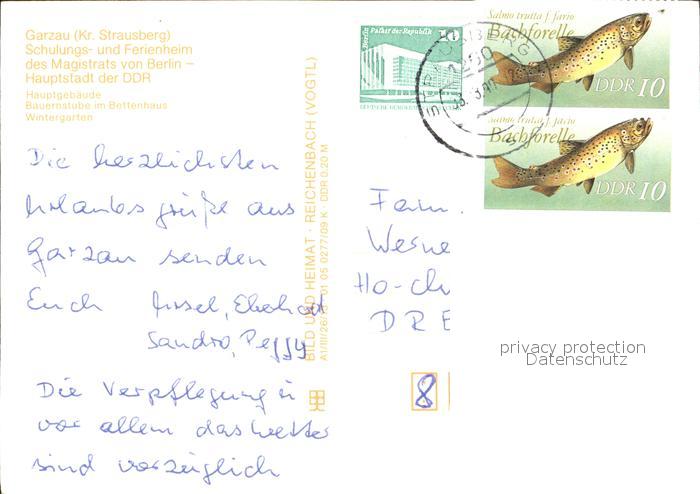 Garzau (Kr. Strausberg)
Schulungs- und Ferienheim
des Magistrats von Berlin –
Hauptstadt der DDR
Hauptgebäude
Bauernstube im Bettenhaus
Wintergarten
Die herzlichsten
Urlaubsgrüße aus
Garzau senden
Euch Ursel, Eberhard
Sandro, Peggy
Die Verpflegung u
vor allem das Wetter
sind vorzüglich
BILD UND HEIMAT · REICHENBACH (VOGTL)
A1/III/26/13 01 05 0277/09 K · DDR 0,20 M
Berlin, Palast der Republik
10
DEUTSCHE DEMOKRATISCHE
Salmo trutta f. fario
Bachforelle
DDR 10
Salmo trutta f. fario
Bachforelle
DDR 10
1260
Fam.
Werne
Ho-ch
DRE
8
privacy protection
Datenschutz